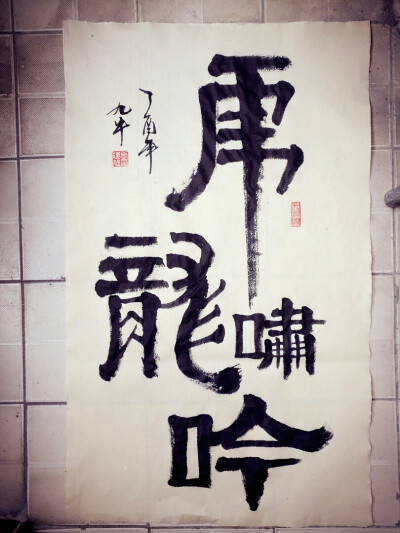 虎嘯龍吟
丁酉年
九牛